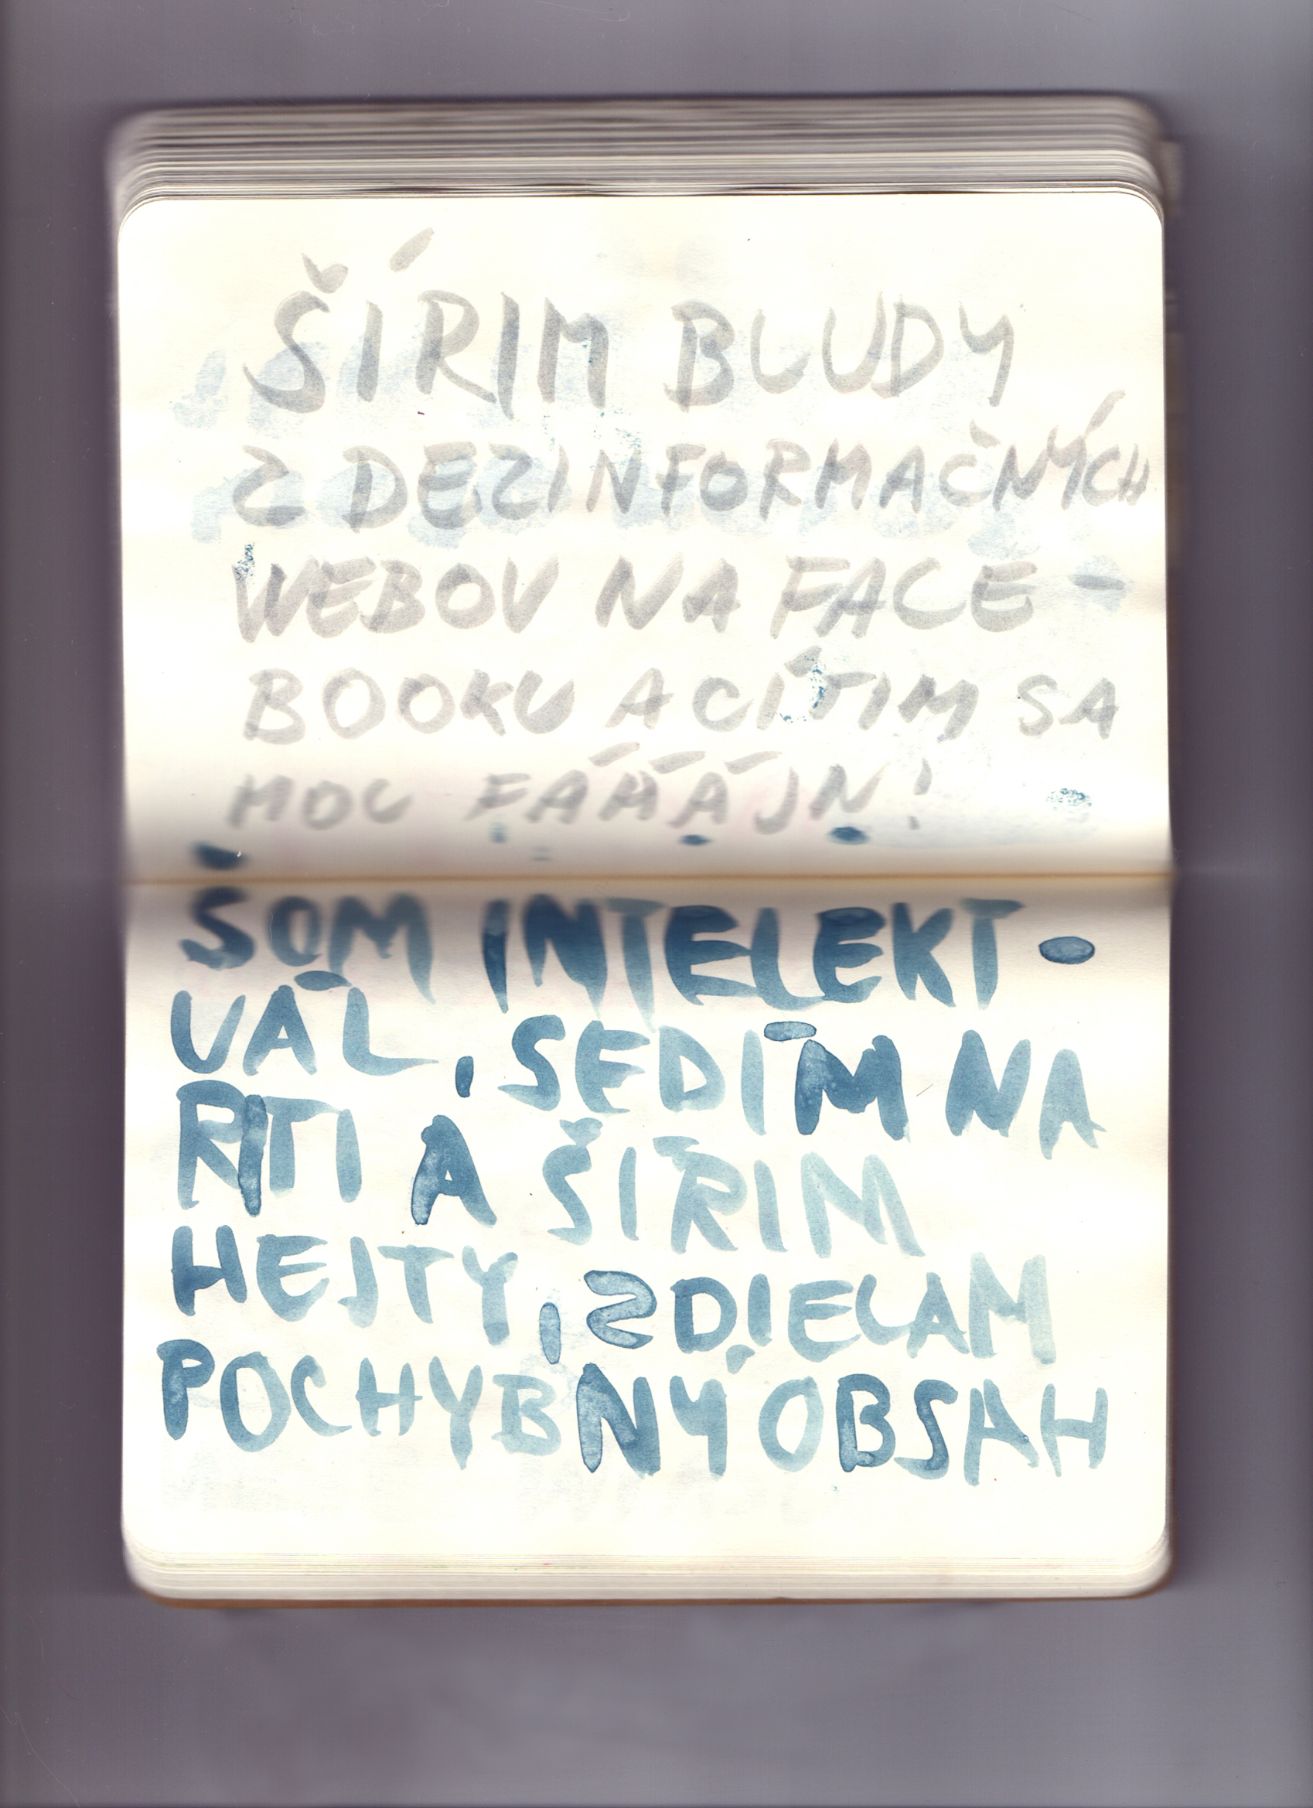 ŠÍRIM BLUDY
Z DEZINFORMAČNÝCH
WEBOV NA FACE-
BOOKU A CÍTIM SA
MOC FÁÁÁJN!
SOM INTELEKT-
UÁL, SEDÍM NA
RITI A ŠÍRIM
HEJTY, ZDIELAM
POCHYBNÝ OBSAH